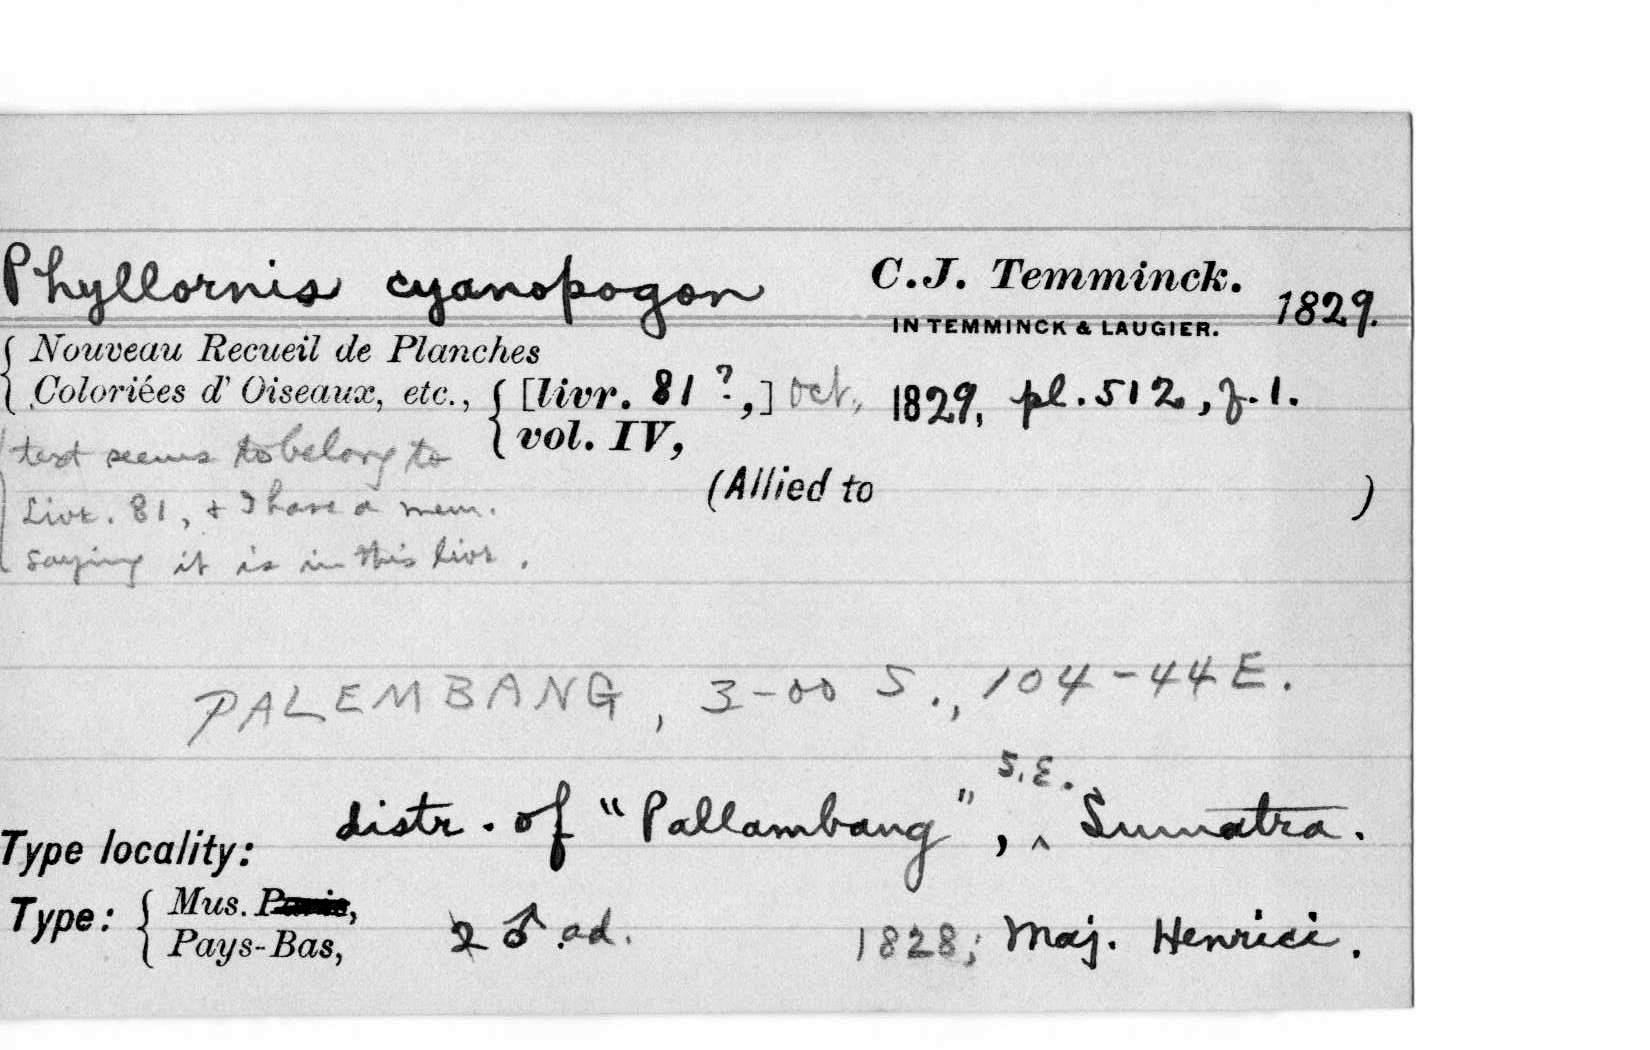 Phyllornis cyanopogon C.J. Temminck. 1829.
IN TEMMINCK & LAUGIER.
Nouveau Recueil de Planches
Coloriées d' Oiseaux, etc., [livr. 81 ?,] Oct., 1829, pl. 512, f. 1.
vol. IV,
text seems to belong to
Livr. 81, & I have a mem.
saying it is in this livr.
(Allied to )
PALEMBANG, 3-00 S., 104-44 E.
Type locality: distr. of "Pallambang", ^ S.E. Sumatra.
Type: Mus. Paris,
Pays-Bas, 2 ♂ ad. 1828; Maj. Henrici.